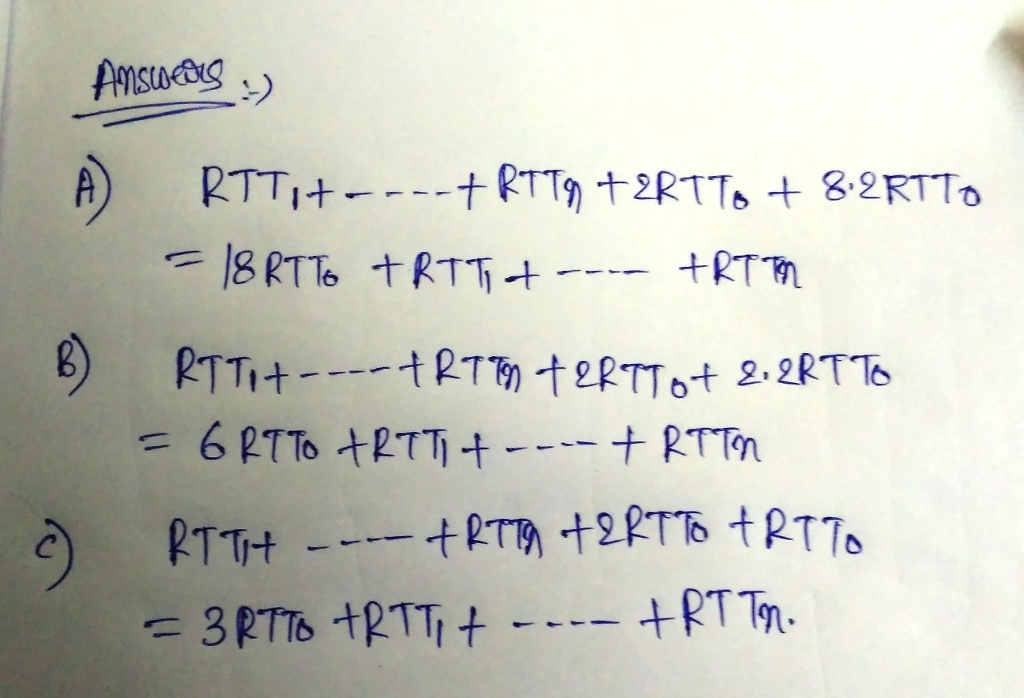 Answers :-)
A) RTT₁ + ----- + RTTn + 2RTT₀ + 8·2RTT₀
= 18 RTT₀ + RTT₁ + ---- + RTTn
B) RTT₁ + ----- + RTTn + 2RTT₀ + 2·2RTT₀
= 6 RTT₀ + RTT₁ + ---- + RTTn
C) RTT₁ + ---- + RTTn + 2RTT₀ + RTT₀
= 3RTT₀ + RTT₁ + ---- + RTTn.